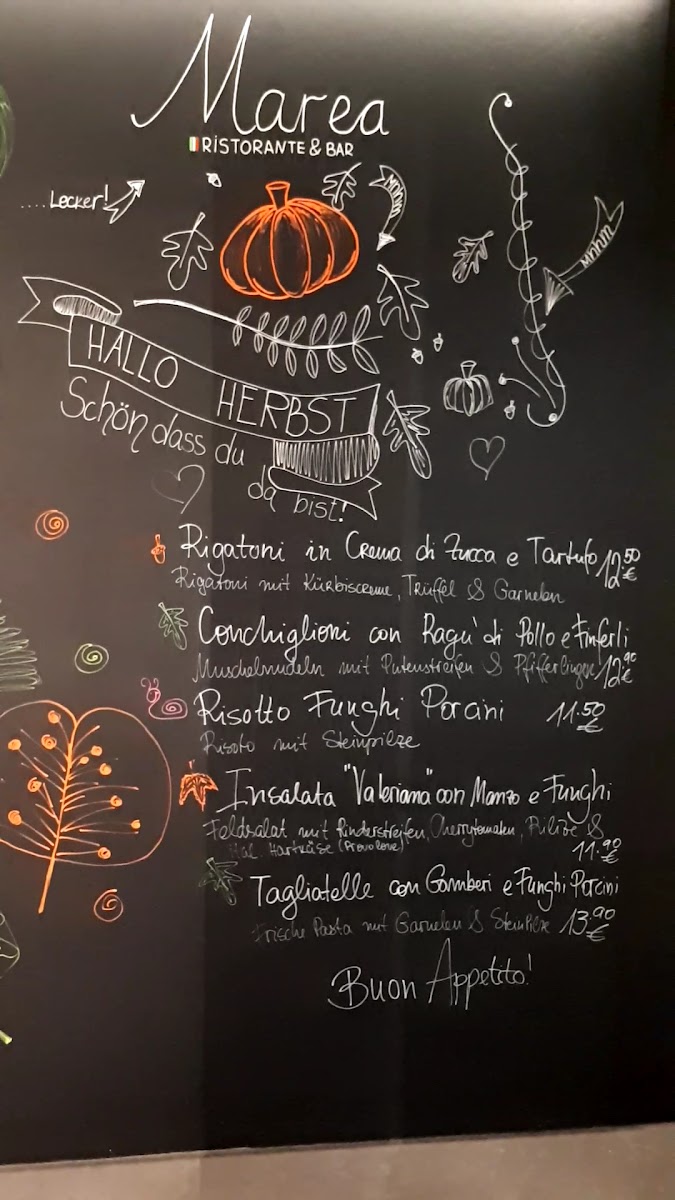 Marea
RISTORANTE & BAR
....Lecker!
MNHM
MNHM
HALLO HERBST
Schön dass du
da bist!
Rigatoni in Crema di Zucca e Tartufo 12.50 €
Rigatoni mit Kürbiscreme, Trüffel & Garnelen
Conchiglioni con Ragu' di Pollo e Finferli
Muschelnudeln mit Putenstreifen & Pfifferlingen 12.90 €
Risotto Funghi Porcini 11.50 €
Risoto mit Steinpilze
Insalata "Valeriana" con Manzo e Funghi
Feldsalat mit Rinderstreifen, Cherrytomaten, Pilze &
ital. Hartkäse (Provolone) 11.90 €
Tagliatelle con Gamberi e Funghi Porcini
Frische Pasta mit Garnelen & Steinpilze 13.90 €
Buon Appetito!